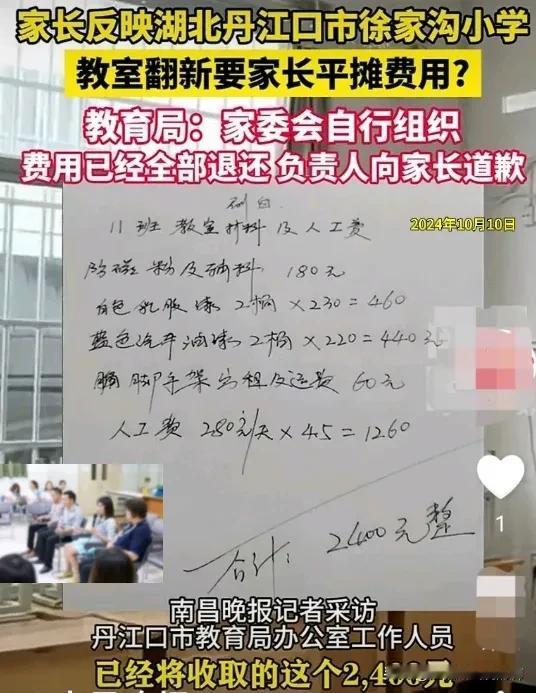 家长反映湖北丹江口市徐家沟小学
教室翻新要家长平摊费用?
教育局：家委会自行组织
费用已经全部退还 负责人向家长道歉
2024年10月10日
11班 教室材料及人工费
180元
白色乳胶漆 2桶 ×230=460
蓝色汽车油漆 2桶 ×220=440元
脚手架出租及运费 60元
人工费 280元/天 ×4.5=1260
合计: 2400元整
1
南昌晚报记者采访
丹江口市教育局办公室工作人员
已经将收取的这个2,400元